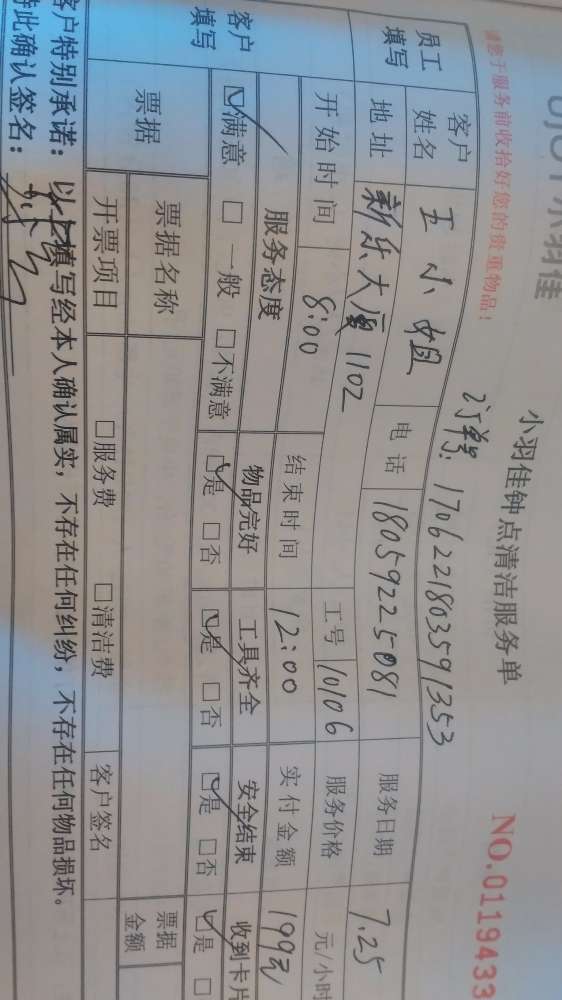 小羽佳
请您于服务前收拾好您的贵重物品!
小羽佳钟点清洁服务单
NO.0119433
订单号: 1706221803591353
员工填写
客户姓名 王小姐 电话 18059225081 服务日期 7.25
地址 新乐大厦1102 工号 10106 服务价格 元/小时
开始时间 8:00 结束时间 12:00 实付金额 199元
客户填写
服务态度 物品完好 工具齐全 安全结束 收到卡片
☑满意 □一般 □不满意 ☑是 □否 ☑是 □否 ☑是 □否 ☑是 □
票据 票据名称 票据金额
开票项目 □服务费 □清洁费 客户签名
客户特别承诺:以上填写经本人确认属实,不存在任何纠纷,不存在任何物品损坏。
特此确认签名: